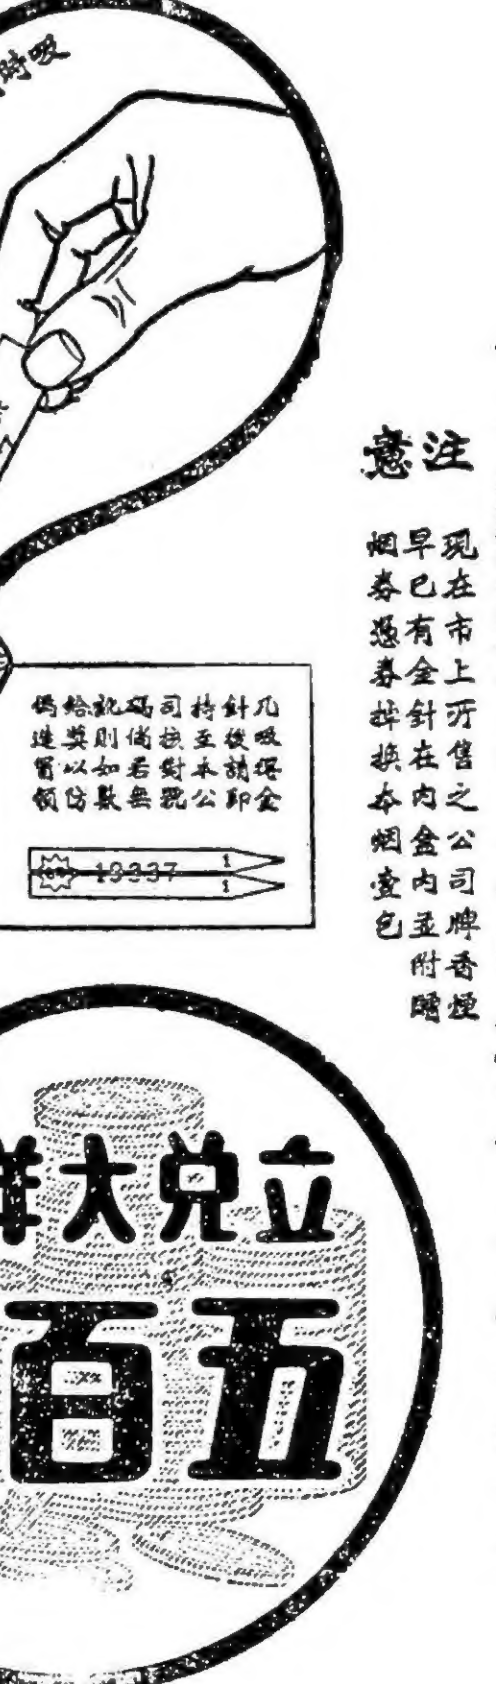 吸時
注意
現在市上所售之公司牌香煙
早已有金針在內盒內並附贈
烟券憑券掉換本烟壹包
凡吸得金
針後請即
持至本公
司對號
碼倘若無
訛則如數
給獎以防
偽造冒領
13337 1
1
立兌大洋
五百